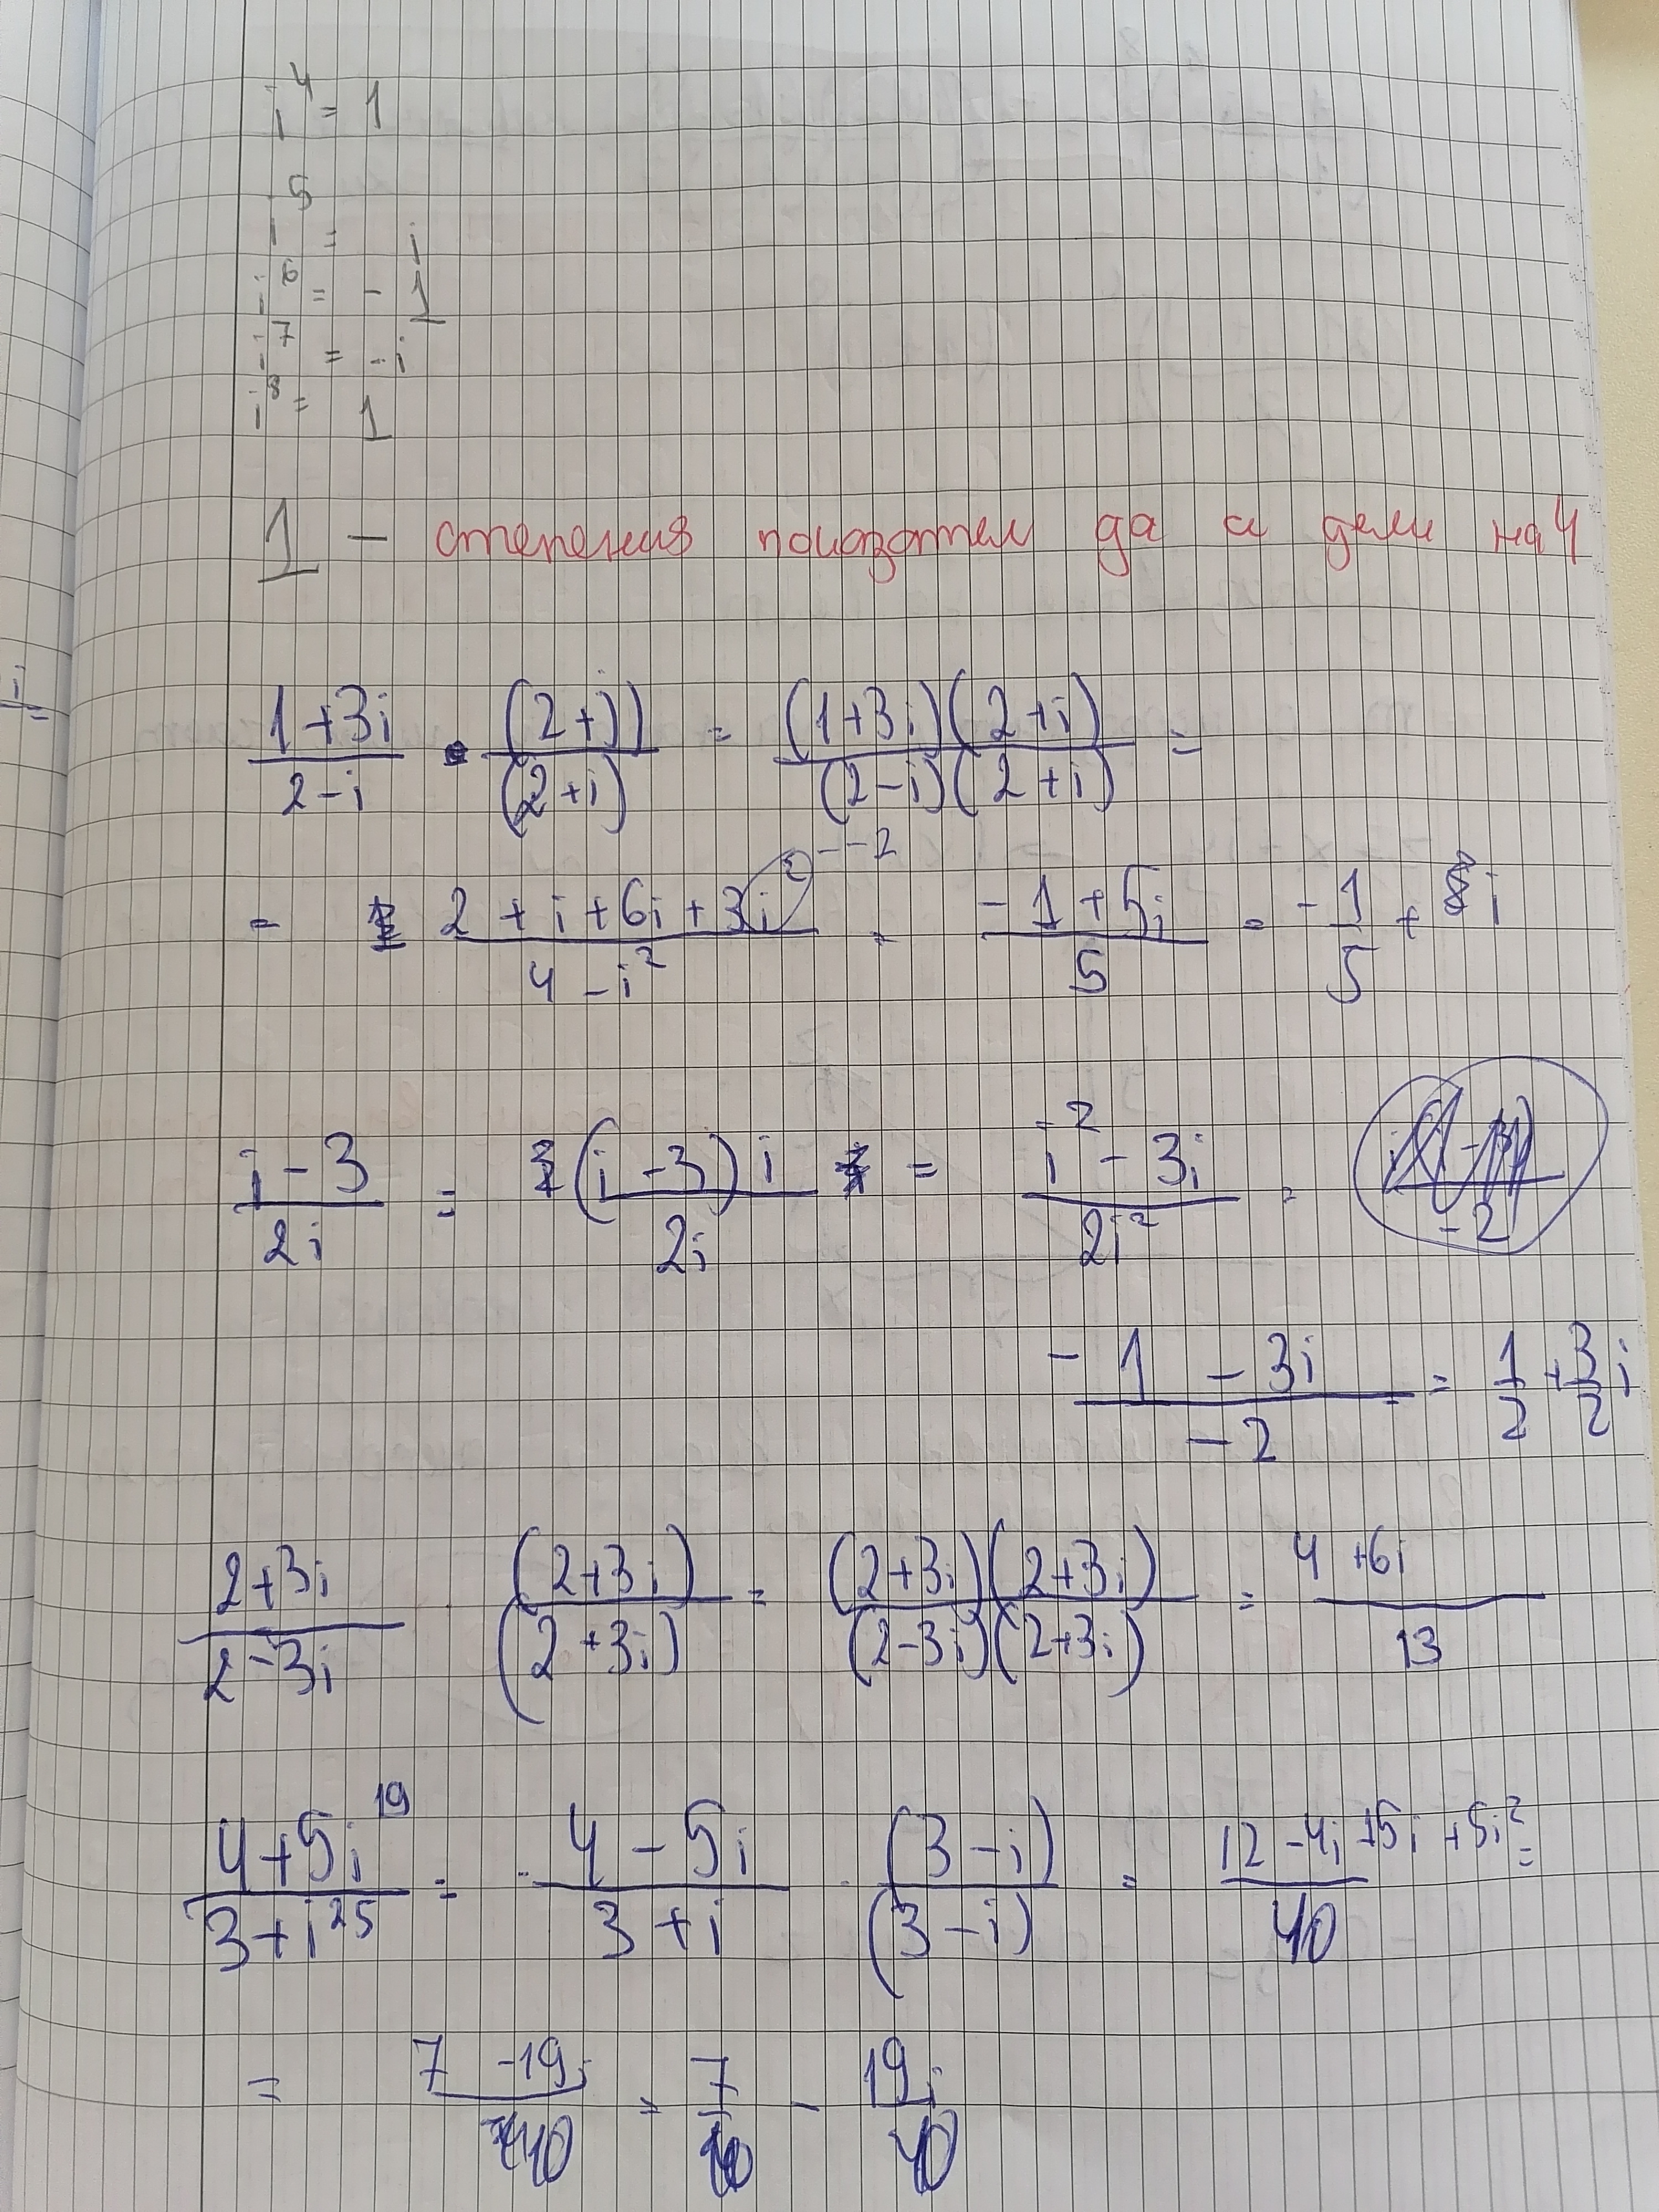 i⁴ = 1
i⁵ = i
i⁶ = - 1
i⁷ = -i
i⁸ = 1
1 – степения показател да се дели на 4
(1+3i)/(2-i) · (2+i)/(2+i) = (1+3i)(2+i)/(2-i)(2+i) =
= (2 + i + 6i + 3i²)/(4 - i²) = (-1 + 5i)/5 = -1/5 + i
(i - 3)/2i = (i - 3) i/2i = (i² - 3i)/2i² =
(-1 - 3i)/-2 = 1/2 + 3/2 i
(2+3i)/(2-3i) · (2+3i)/(2+3i) = (2+3i)(2+3i)/(2-3i)(2+3i) = (4 +6i)/13
(4+5i¹⁹)/(3+i²⁵) = (4 - 5i)/(3 + i) · (3 - i)/(3 - i) = (12 - 4i +5i +5i²)/40 =
= (7 -19i)/40 = 7/10 - 19i/40